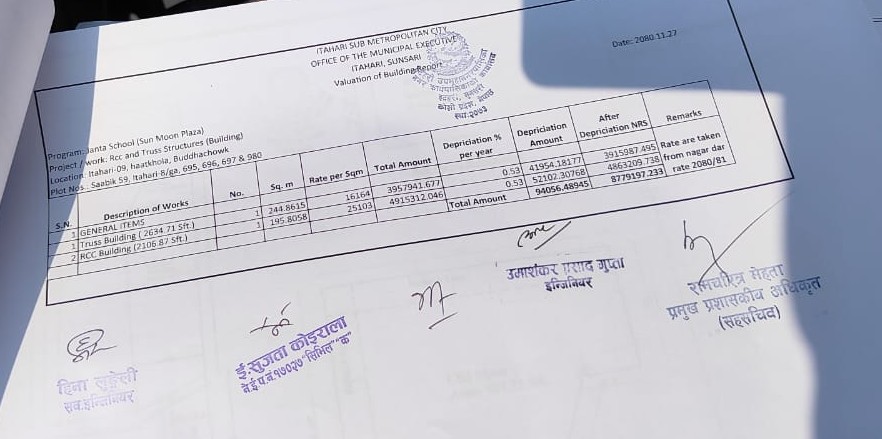 ITAHARI SUB METROPOLITAN CITY
OFFICE OF THE MUNICIPAL EXECUTIVE
ITAHARI, SUNSARI
Valuation of Building Report
Date: 2080.11.27
इटहरी, सुनसरी
कोशी प्रदेश, नेपाल
स्था.२०७३
Program: Janta School (Sun Moon Plaza)
Project / work: Rcc and Truss Structures (Building)
Location: Itahari-09, haatkhola, Buddhachowk
Plot Nos.: Saabik 59, Itahari-8/ga, 695, 696, 697 & 980
S.N. Description of Works No. Sq. m Rate per Sqm Total Amount Depriciation % per year Depriciation Amount After Depriciation NRS Remarks
1 GENERAL ITEMS
1 Truss Building ( 2634.71 Sft.) 1 244.8615 16164 3957941.677 0.53 41954.18177 3915987.495 Rate are taken
2 RCC Building (2106.87 Sft.) 1 195.8058 25103 4915312.046 0.53 52102.30768 4863209.738 from nagar dar
Total Amount 94056.48945 8779197.233 rate 2080/81
हिना
सव.इन्जिनियर
ई.सुजता कोइराला
ने.ई.प.नं.१७०२७ "सिभिल" "क"
उमाशंकर प्रसाद गुप्ता
इन्जिनियर
रामचरित्र मेहता
प्रमुख प्रशासकीय अधिकृत
(सहसचिव)